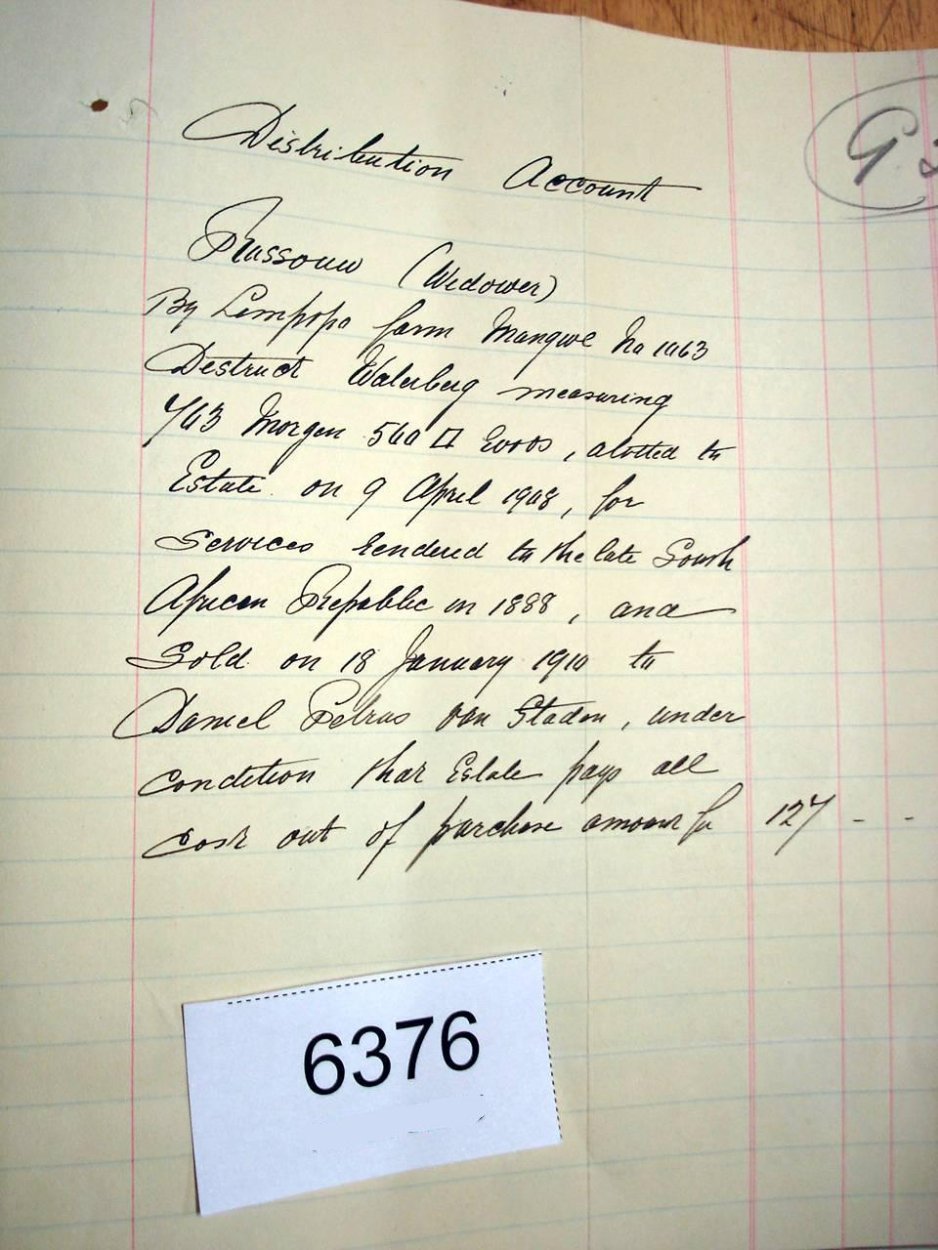 Distribution Account
G
Russouw (Widower)
By Limpopo farm Mangwe No 1063
District Waterberg measuring
763 Morgen 560 □ Roods, alotted to
Estate on 9 April 1908, for
Services rendered to the late South
African Republic in 1888, and
Sold on 18 January 1910 to
Daniel Petrus van Staden, under
condition that Estate pays all
cost out of purchase amount for 127 - -
6376